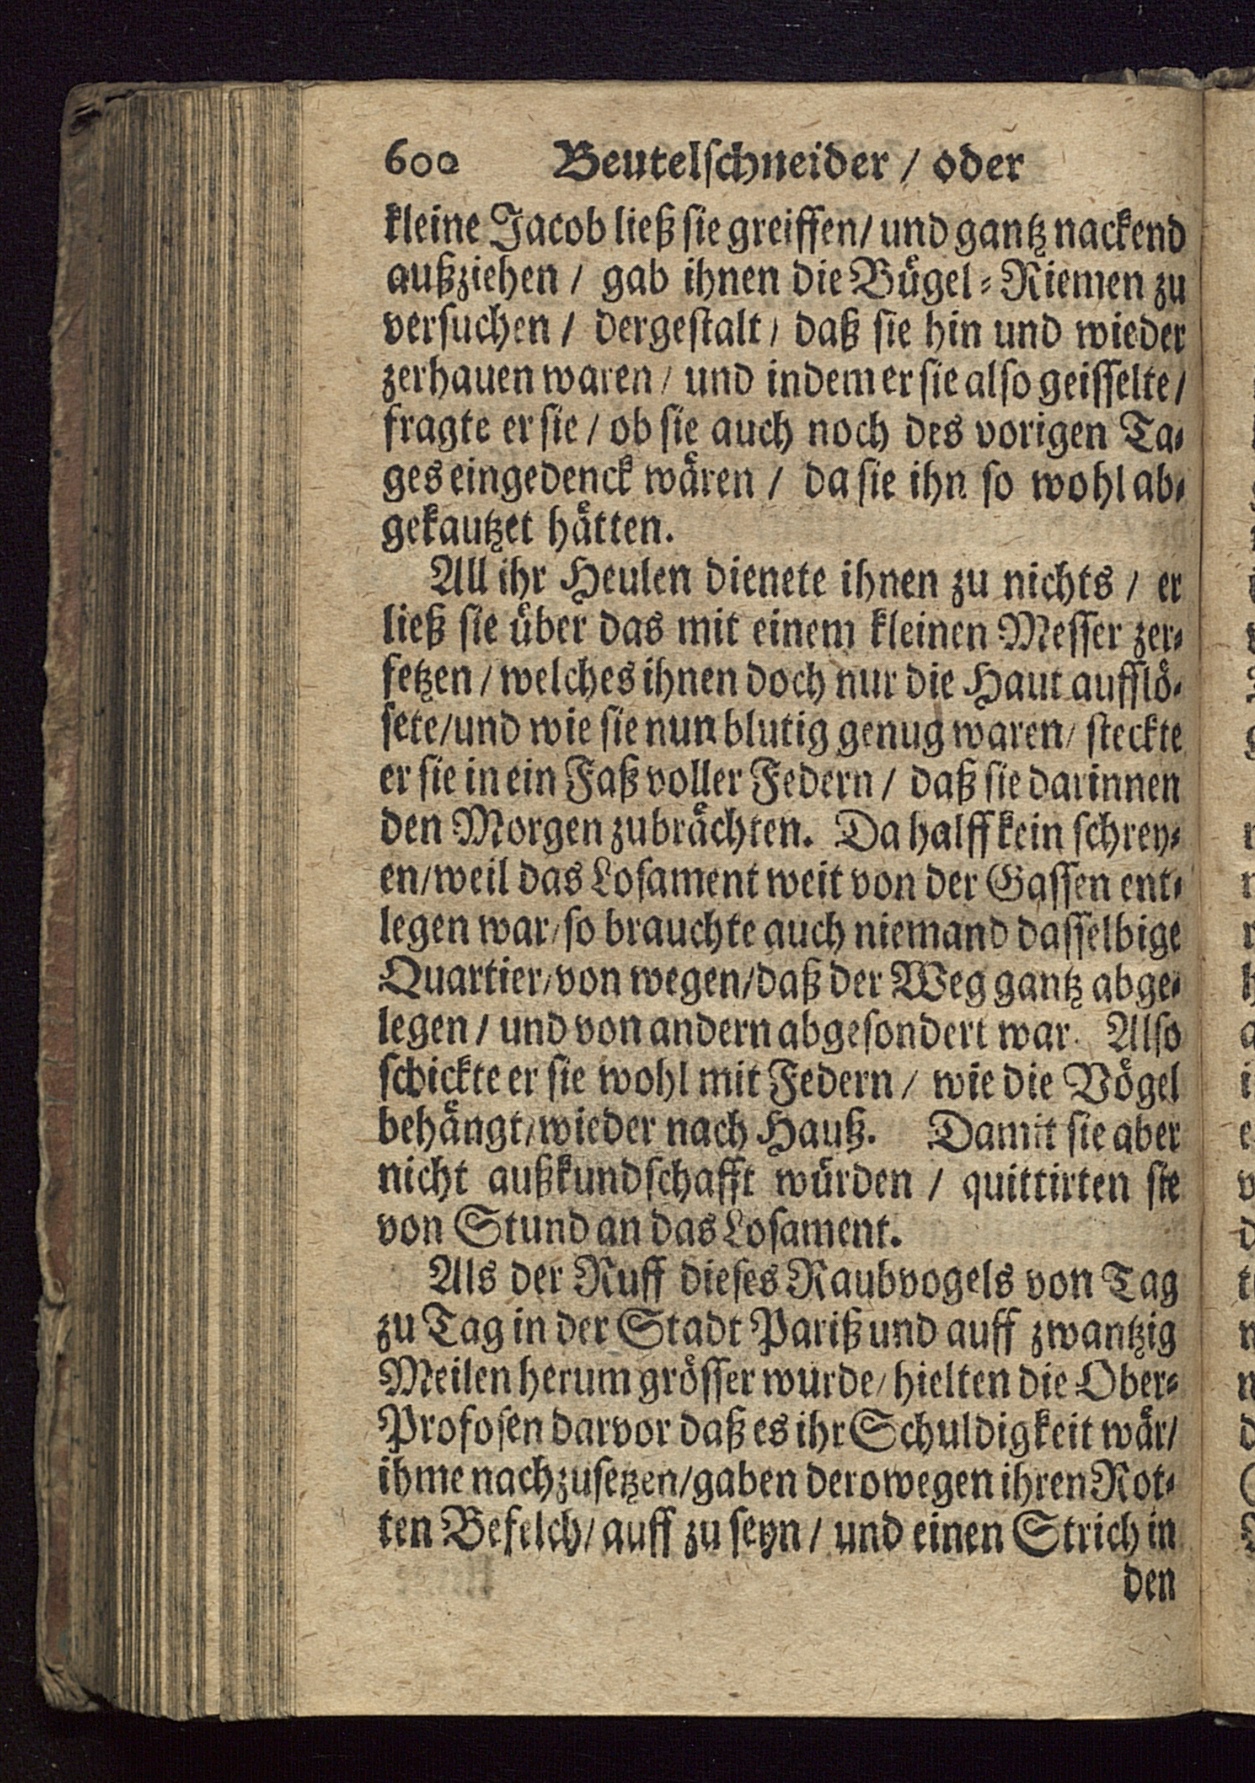 600 Beutelschneider / oder
kleine Jacob ließ sie greiffen/ und gantz nackend
außziehen / gab ihnen die Bügel-Riemen zu
versuchen / dergestalt / daß sie hin und wieder
zerhauen waren / und indem er sie also geisselte /
fragte er sie / ob sie auch noch des vorigen Ta-
ges eingedenck wären / da sie ihn so wohl ab-
gekautzet hätten.
All ihr Heulen dienete ihnen zu nichts / er
ließ sie über das mit einem kleinen Messer zer-
fetzen / welches ihnen doch nur die Haut aufflö-
sete/und wie sie nun blutig genug waren/ steckte
er sie in ein Faß voller Federn / daß sie darinnen
den Morgen zubrächten. Da halff kein schrey-
en/weil das Losament weit von der Gassen ent-
legen war/so brauchte auch niemand dasselbige
Quartier/von wegen/daß der Weg gantz abge-
legen / und von andern abgesondert war. Also
schickte er sie wohl mit Federn / wie die Vögel
behängt/wieder nach Hauß. Damit sie aber
nicht außkundschafft würden / quittirten sie
von Stund an das Losament.
Als der Ruff dieses Raubvogels von Tag
zu Tag in der Stadt Pariß und auff zwantzig
Meilen herum grösser wurde/ hielten die Ober-
Profosen darvor daß es ihr Schuldigkeit wär/
ihme nachzusetzen/gaben derowegen ihren Rot-
ten Befelch/ auff zu seyn / und einen Strich in
den